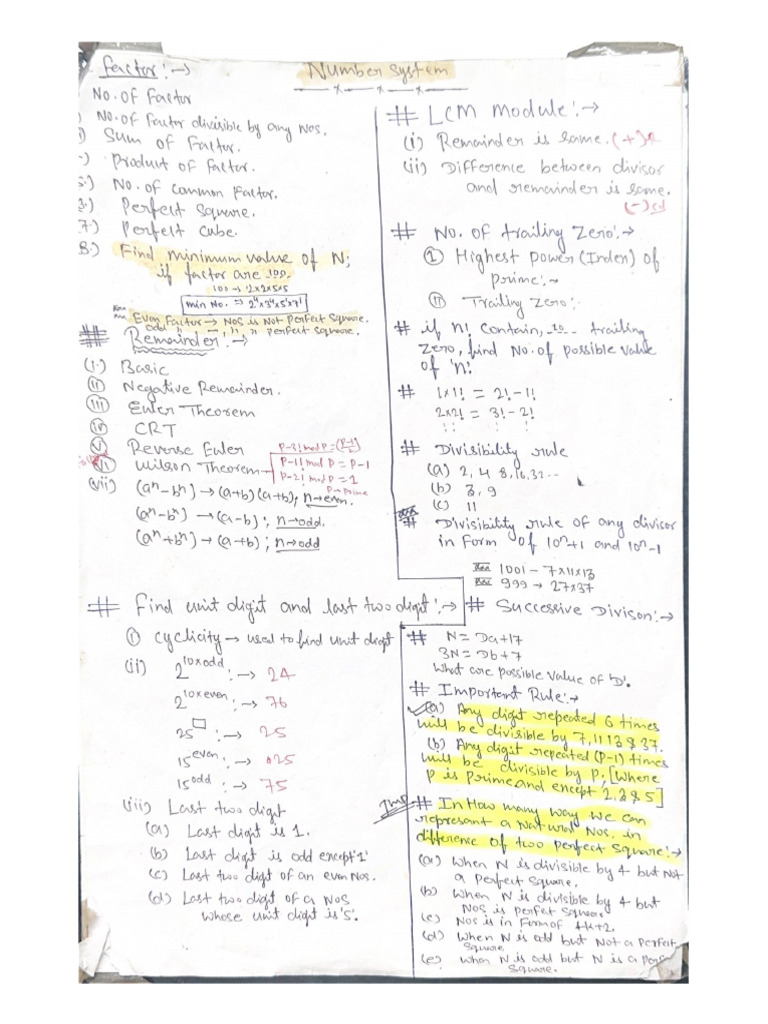 Number system
Factor:→
No. of Factor
No. of Factor divisible by any Nos.
Sum of Factor.
Product of factor.
No. of common Factor.
Perfect Square.
7.) Perfect Cube.
8.) Find minimum value of N;
if factor are 100.
100 → 2x2x5x5
min No. ⇒ 2⁴x3⁴x5¹x7¹
Even Factor → Nos is Not Perfect Square.
odd " → " " perfect square.
## Remainder:→
(i.) Basic
(ii) Negative Remainder.
(iii) Euler Theorem
(iv) CRT
(v) Reverse Euler
(vi) Wilson Theorem
P-3! mod P = (P-1)/2
P-1! mod P = P-1
P-2! mod P = 1
P→Prime
(vii) (aⁿ-bⁿ) → (a+b)(a+b); n→even.
(aⁿ-bⁿ) → (a-b); n→odd.
(aⁿ+bⁿ) → (a+b); n→odd
# Find unit digit and last two digit:→
(i) Cyclicity → used to find unit digit
(ii) 2^10xodd :→ 24
2^10xeven :→ 76
25^□ :→ 25
15^even :→ 25
15^odd :→ 75
(iii) Last two digit
(a) Last digit is 1.
(b) Last digit is odd except '1'
(c) Last two digit of an even Nos.
(d) Last two digit of a Nos
whose unit digit is '5'.
# LCM Module:→
(i) Remainder is same. (+)R
(ii) Difference between divisor
and remainder is same.
(-)cd
# No. of trailing Zero:→
(i) Highest power (Index) of
prime:~
(ii) Trailing Zero:-
# if n! contain, _10_ trailing
Zero, find No. of possible value
of 'n!
# 1x1! = 2!-1!
2x2! = 3!-2!
# Divisibility rule
(a) 2, 4 8, 16, 32...
(b) 3, 9
(c) 11
# Divisibility rule of any divisor
in form of 10ⁿ+1 and 10ⁿ-1
1001 - 7x11x13
999 → 27x37
# Successive Divison:→
# N = Da+17
3N = Db+7
What are possible value of 'D'.
# Important Rule:→
(a) Any digit repeated 6 times
will be divisible by 7, 11 13 & 37.
(b) Any digit repeated (P-1) times
will be divisible by P, [Where
P is Prime and except 2, 3 & 5]
Imp
# In How many way we can
represant a Natural Nos. in
difference of two perfect square:→
(a) when N is divisible by 4 but Not
a perfect square.
(b) when N is divisible by 4 but
Nos is perfect square
(c) Nos is in Form of 4K+2.
(d) When N is odd but Not a Perfect
Square
(e) when N is odd but N is a
Square.